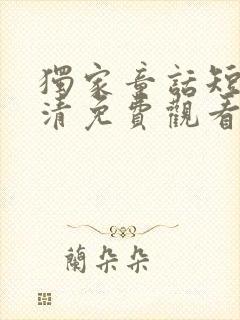 獨家童話短
清免費觀看
蘭朵朵